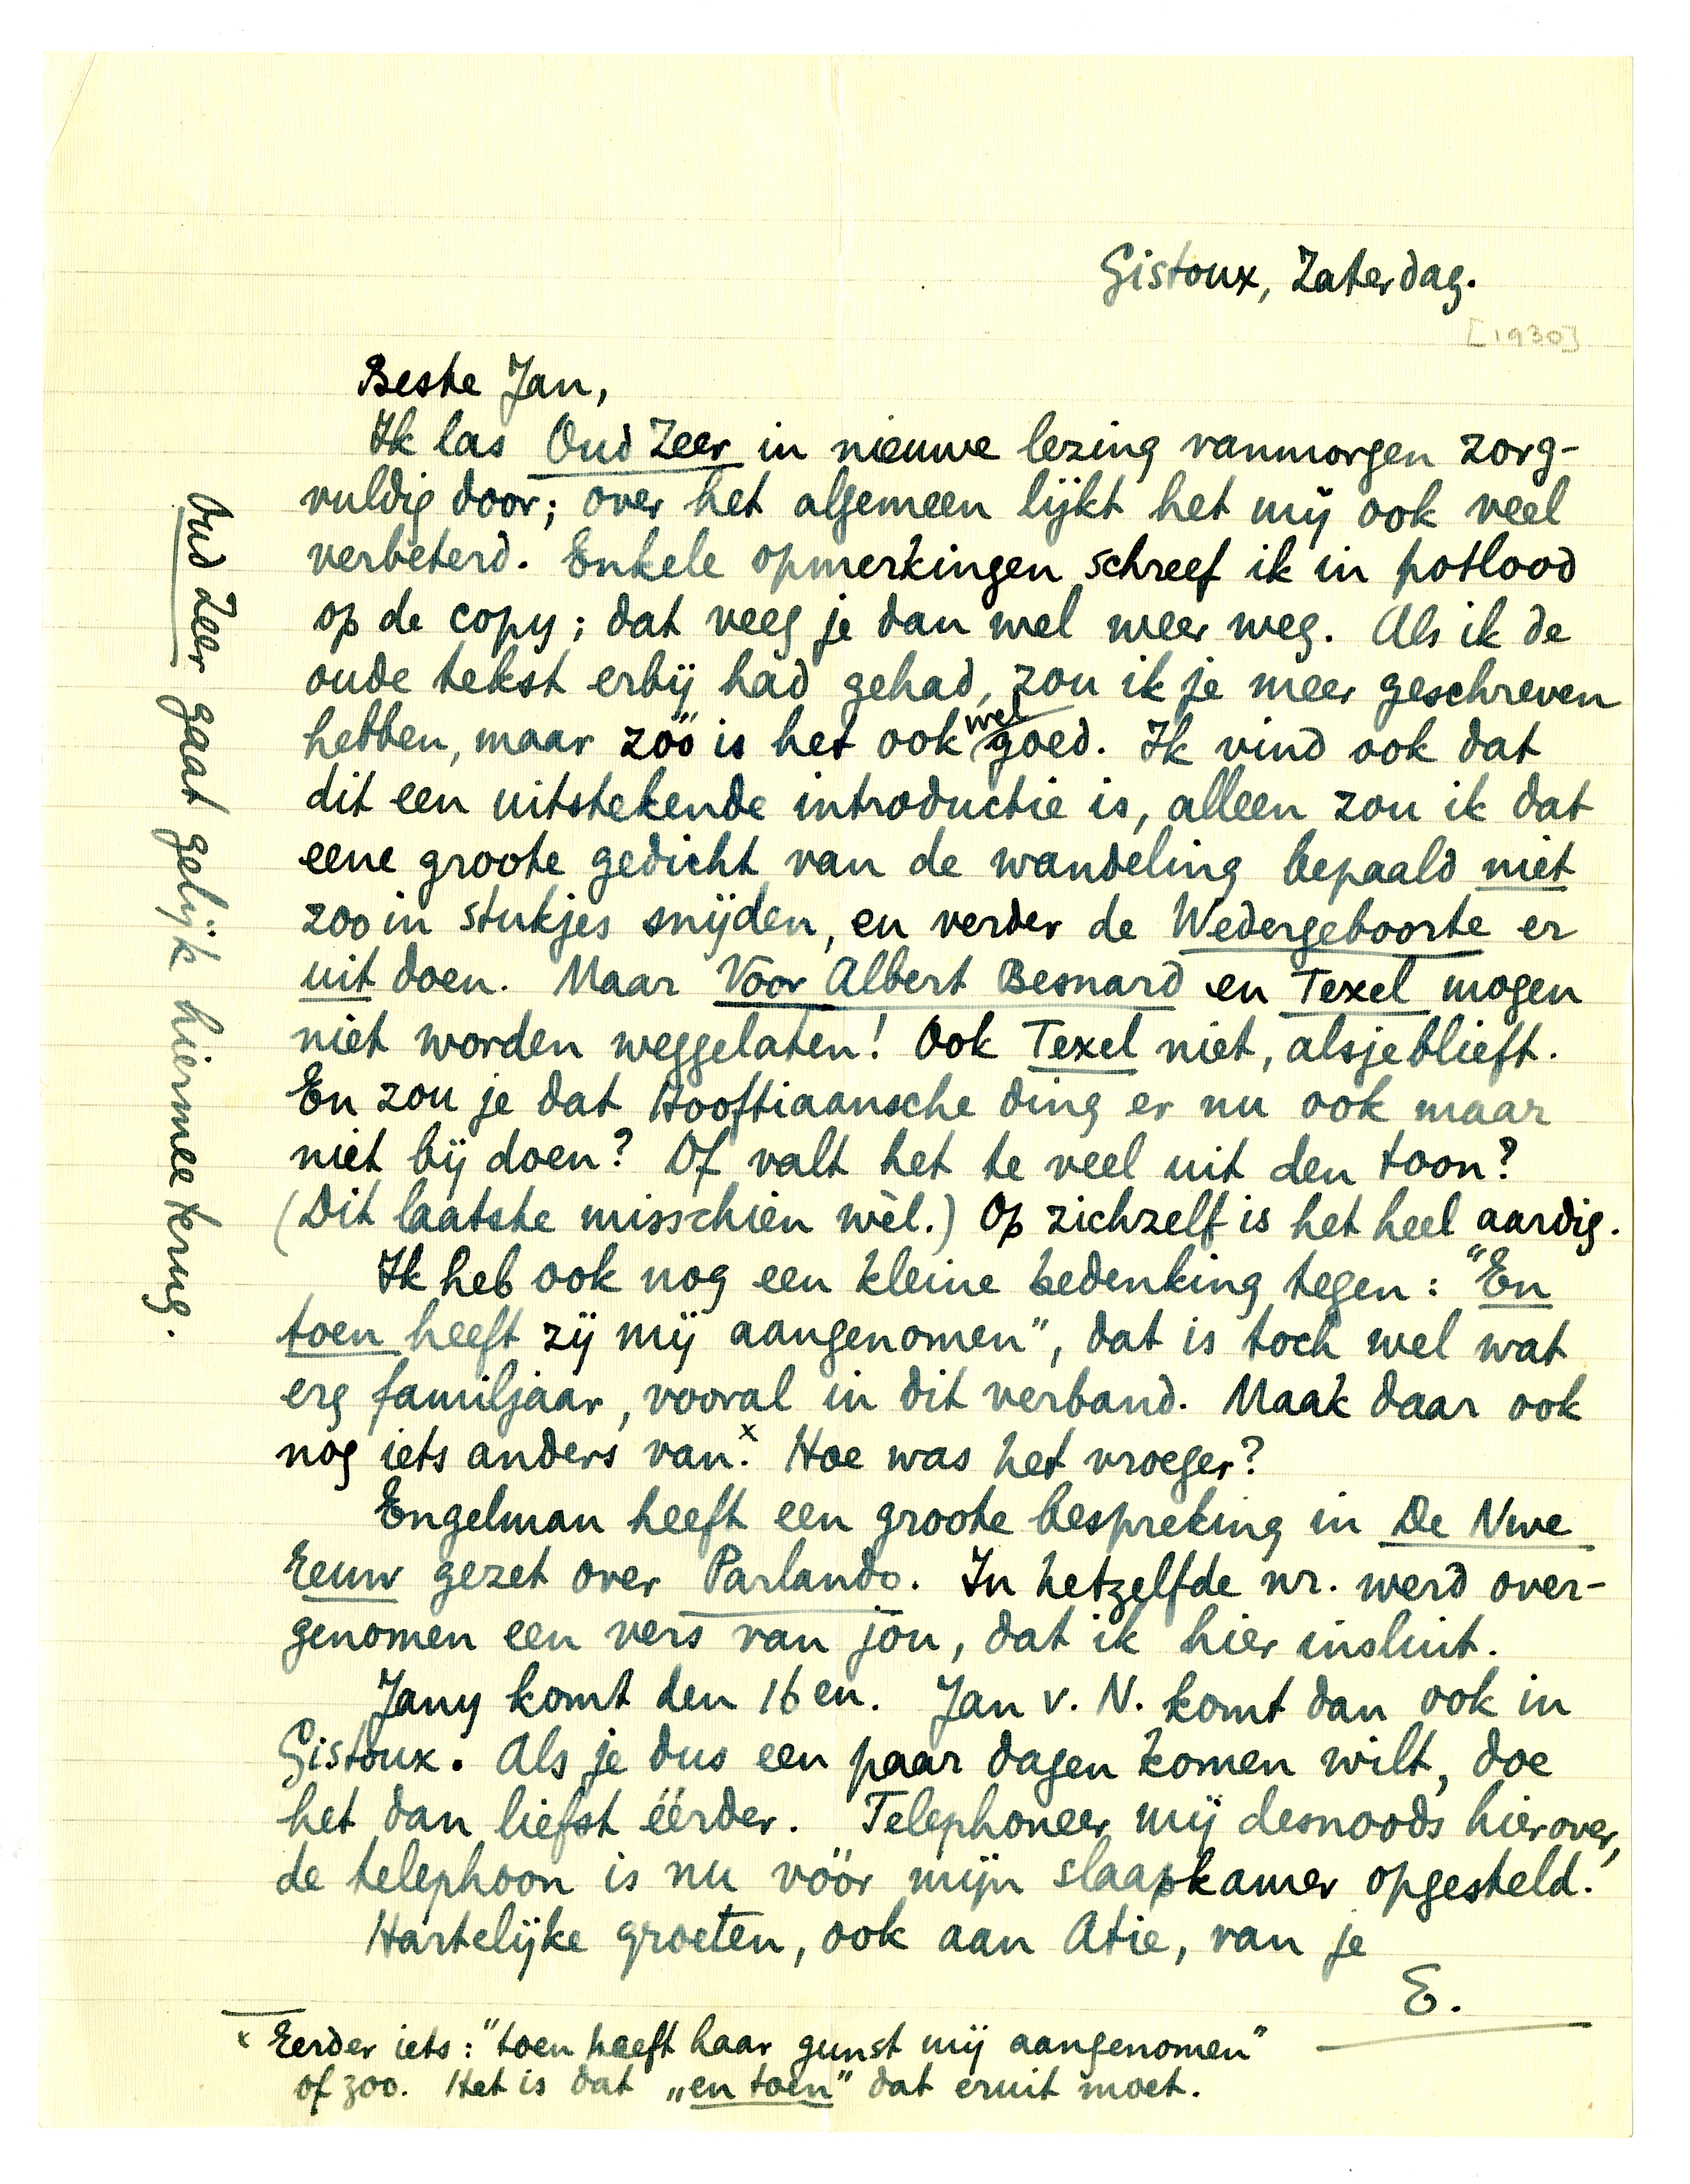 Gistoux, Zaterdag.
[1930]
Beste Jan,
Ik las Oud Zeer in nieuwe lezing vanmorgen zorg-
vuldig door; over het algemeen lijkt het mij ook veel
verbeterd. Enkele opmerkingen schreef ik in potlood
op de copy; dat veeg je dan wel weer weg. Als ik de
oude tekst erbij had gehad, zou ik je meer geschreven
hebben, maar zóó is het ook wel goed. Ik vind ook dat
dit een uitstekende introductie is, alleen zou ik dat
eene groote gedicht van de wandeling bepaald niet
zoo in stukjes snijden, en verder de Wedergeboorte er
uit doen. Maar Voor Albert Besnard en Texel mogen
niet worden weggelaten! Ook Texel niet, alsjeblieft.
En zou je dat Hooftiaansche ding er nu ook maar
niet bij doen? Of valt het te veel uit den toon?
(Dit laatste misschien wèl.) Op zichzelf is het heel aardig.
Ik heb ook nog een kleine bedenking tegen: "En
toen heeft zij mij aangenomen", dat is toch wel wat
erg familjaar, vooral in dit verband. Maak daar ook
nog iets anders van.x Hoe was het vroeger?
Engelman heeft een groote bespreking in De Nwe
Eeuw gezet over Parlando. In hetzelfde nr. werd over-
genomen een vers van jou, dat ik hier insluit.
Jany komt den 16en. Jan v. N. komt dan ook in
Gistoux. Als je dus een paar dagen komen wilt, doe
het dan liefst éérder. Telephoneer mij desnoods hierover,
de telephoon is nu vóór mijn slaapkamer opgesteld.
Hartelijke groeten, ook aan Atie, van je
E.
x Eerder iets: "toen heeft haar gunst mij aangenomen"
of zoo. Het is dat „en toen" dat eruit moet.
Oud Zeer gaat gelijk hiermee terug.